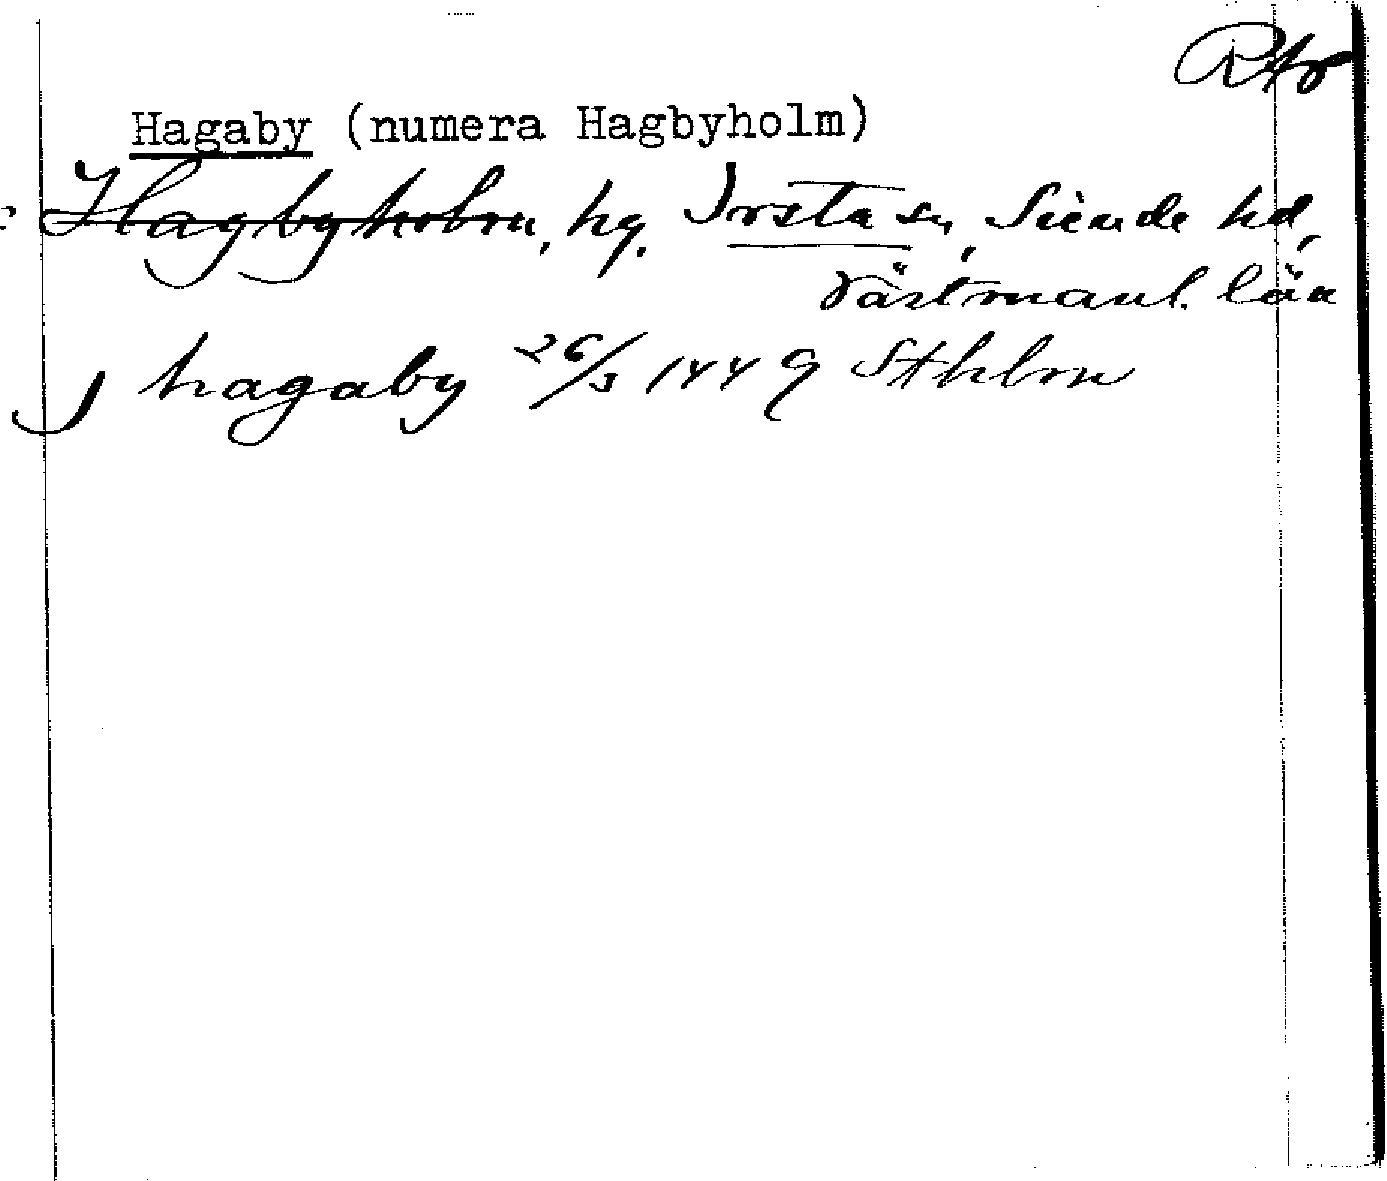 Rtr
Hagaby (numera Hagbyholm)
Hagbyholm, hg. Irsta sn, Siende hd,
Västmanl. län
J hagaby 26/3 1449 Sthlm